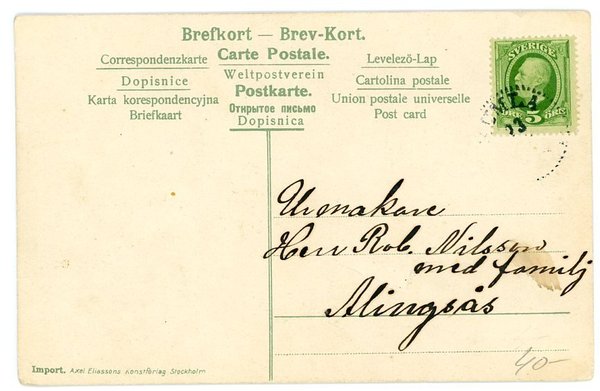 Brefkort — Brev-Kort.
Correspondenzkarte Carte Postale. Levelező-Lap
Dopisnice Weltpostverein Cartolina postale
Karta korespondencyjna Postkarte. Union postale universelle
Briefkaart Открытое письмо Post card
Dopisnica
SVERIGE
ÖRE 5 ÖRE
Urmakare
Herr Rob. Nilsson
med familj
Alingsås
Import. Axel Eliassons Konstförlag Stockholm
40-